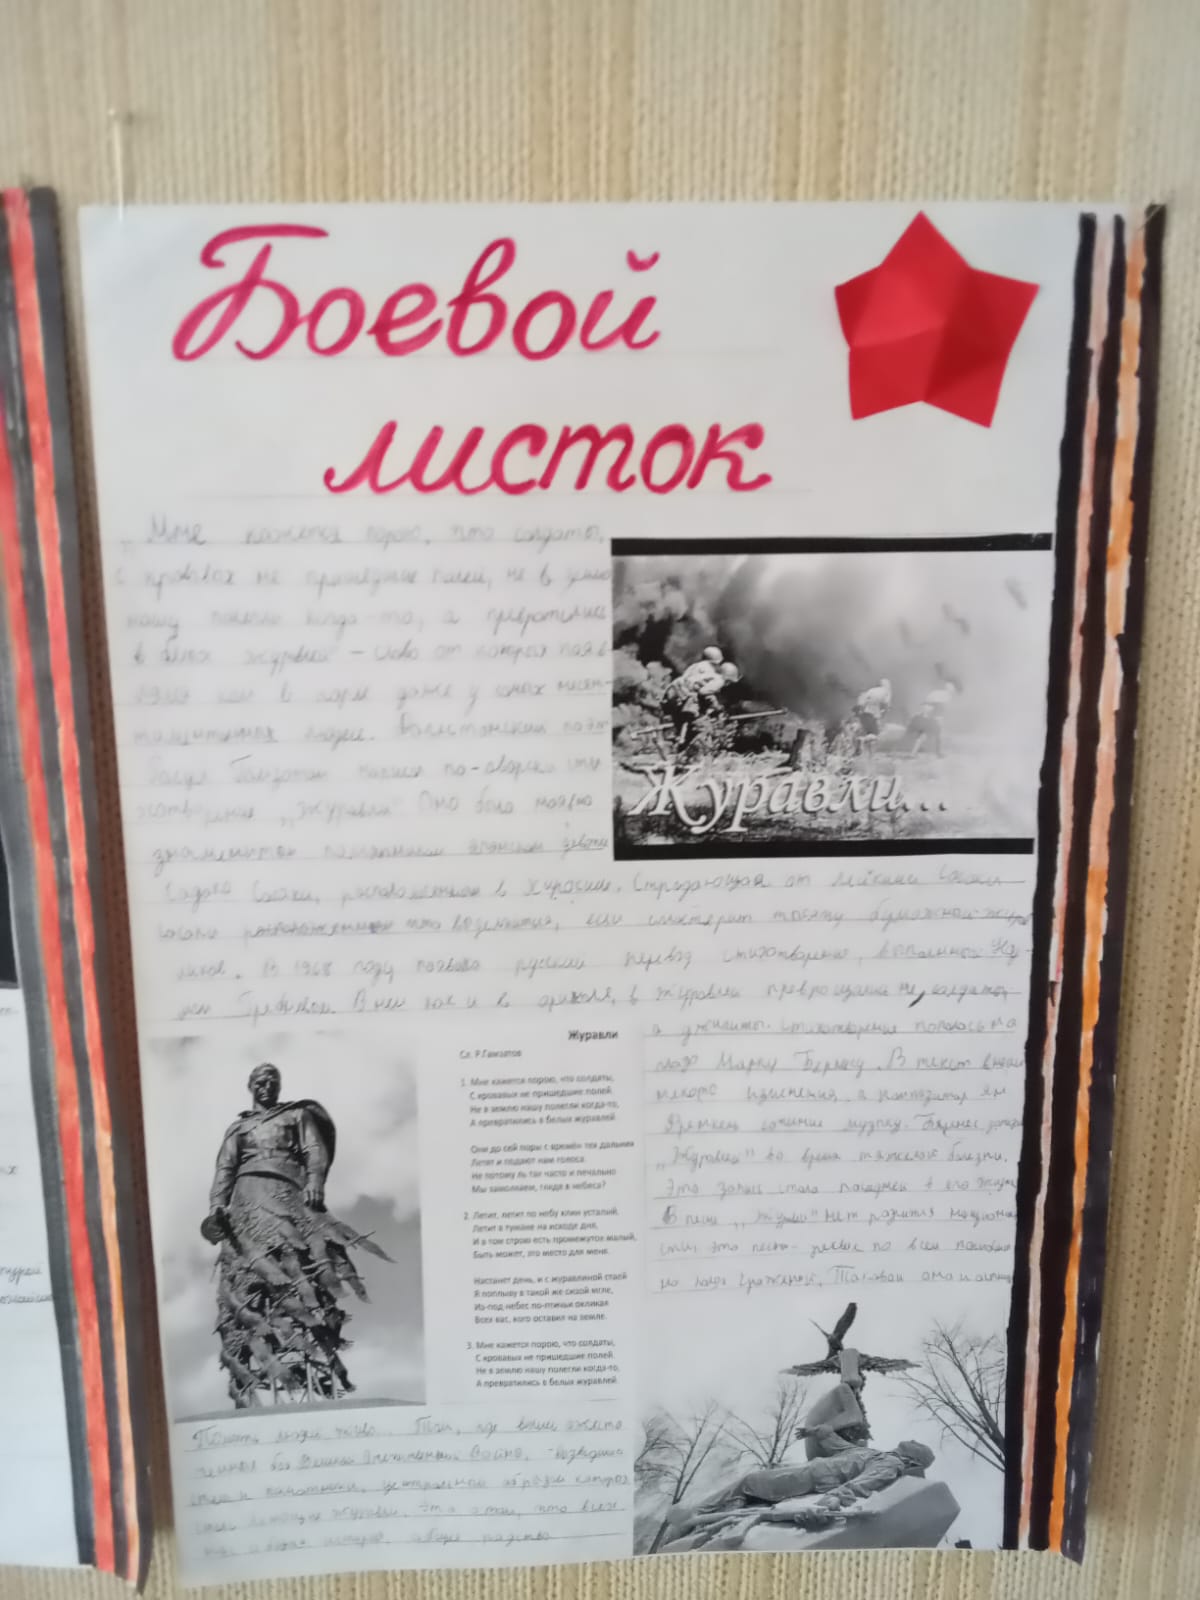 Боевой
листок
Мне кажется порою, что солдаты,
с кровавых не пришедшие полей, не в землю
нашу полегли когда-то, а превратились
в белых журавлей" – слова от которых появ-
ком в горле даже у самых несен-
тиментальных людей. Дагестанский поэт
Расул Гамзатов написал по-аварски сти
хотворение „Журавли" Оно было
знаменитой памятником японской девочки
Садако Сасаки, расположенном в Хиросиме. Страдающая от лейкемии Сасаки
Сасаки что если смастерит тысячу бумажных журав
ликов. В 1968 году русский перевод стихотворения, выполненный На-
умом Гребневым. В нем как и в в журавлей превращались не солдаты,
а джигиты. Стихотворение попалось на
глаза Марку Бернесу. В текст внесли
некоторые изменения, а композитор Ян
Френкель сочинил музыку. Бернес записал
„Журавли" во время тяжелой болезни.
Эта запись стала последней в его жизни
В песне нет
это песня – реквием по всем погибшим
на полях сражений.
Журавли...
Журавли
Сл. Р.Гамзатов
1. Мне кажется порою, что солдаты,
С кровавых не пришедшие полей
Не в землю нашу полегли когда-то,
А превратились в белых журавлей
Они до сей поры с времён тех дальних
Летят и подают нам голоса.
Не потому ль так часто и печально
Мы замолкаем, глядя в небеса?
2. Летит, летит по небу клин усталый,
Летит в тумане на исходе дня,
И в том строю есть промежуток малый,
Быть может, это место для меня.
Настанет день, и с журавлиной стаей
Я поплыву в такой же сизой мгле,
Из-под небес по-птичьи окликая
Всех вас, кого оставил на земле.
3. Мне кажется порою, что солдаты,
С кровавых не пришедшие полей
Не в землю нашу полегли когда-то,
А превратились в белых журавлей.
Память людей жива... Там, где
бои Великой Отечественной Войны,
памятники, центральным образом которых
стали летящие журавли. Это о том, что всех